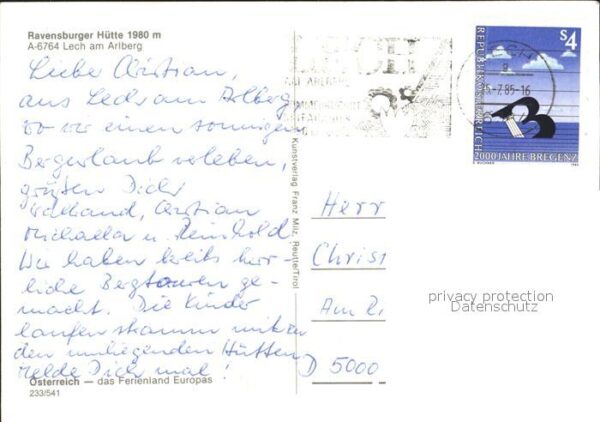 Ravensburger Hütte 1980 m
A-6764 Lech am Arlberg
Liebe Christian,
aus Lech am Arlberg,
wo wir einen sonnigen
Bergurlaub verleben,
grüßen Dich
Christian
Michaela u. Reinhold.
Wir haben bereits herr-
liche Bergtouren ge-
macht. Die Kinder
laufen stramm mit zu
den umliegenden Hütten
Melde Dich mal!
Österreich — das Ferienland Europas
233/541
Kunstverlag Franz Milz, Reutte/Tirol
LECH
AM ARLBERG
5.-7.85-16
S4
REPUBLIK ÖSTERREICH
2000 JAHRE BREGENZ
Herr
Christ
Am R
D 5000
privacy protection
Datenschutz